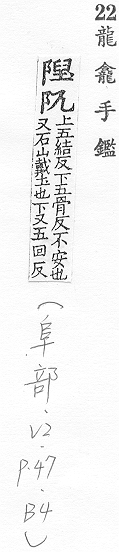 22龍龕手鑑
隉阢上五結反下五骨反不安也
又石山戴土也下又五回反
(阜部.V2.P.47.B4)